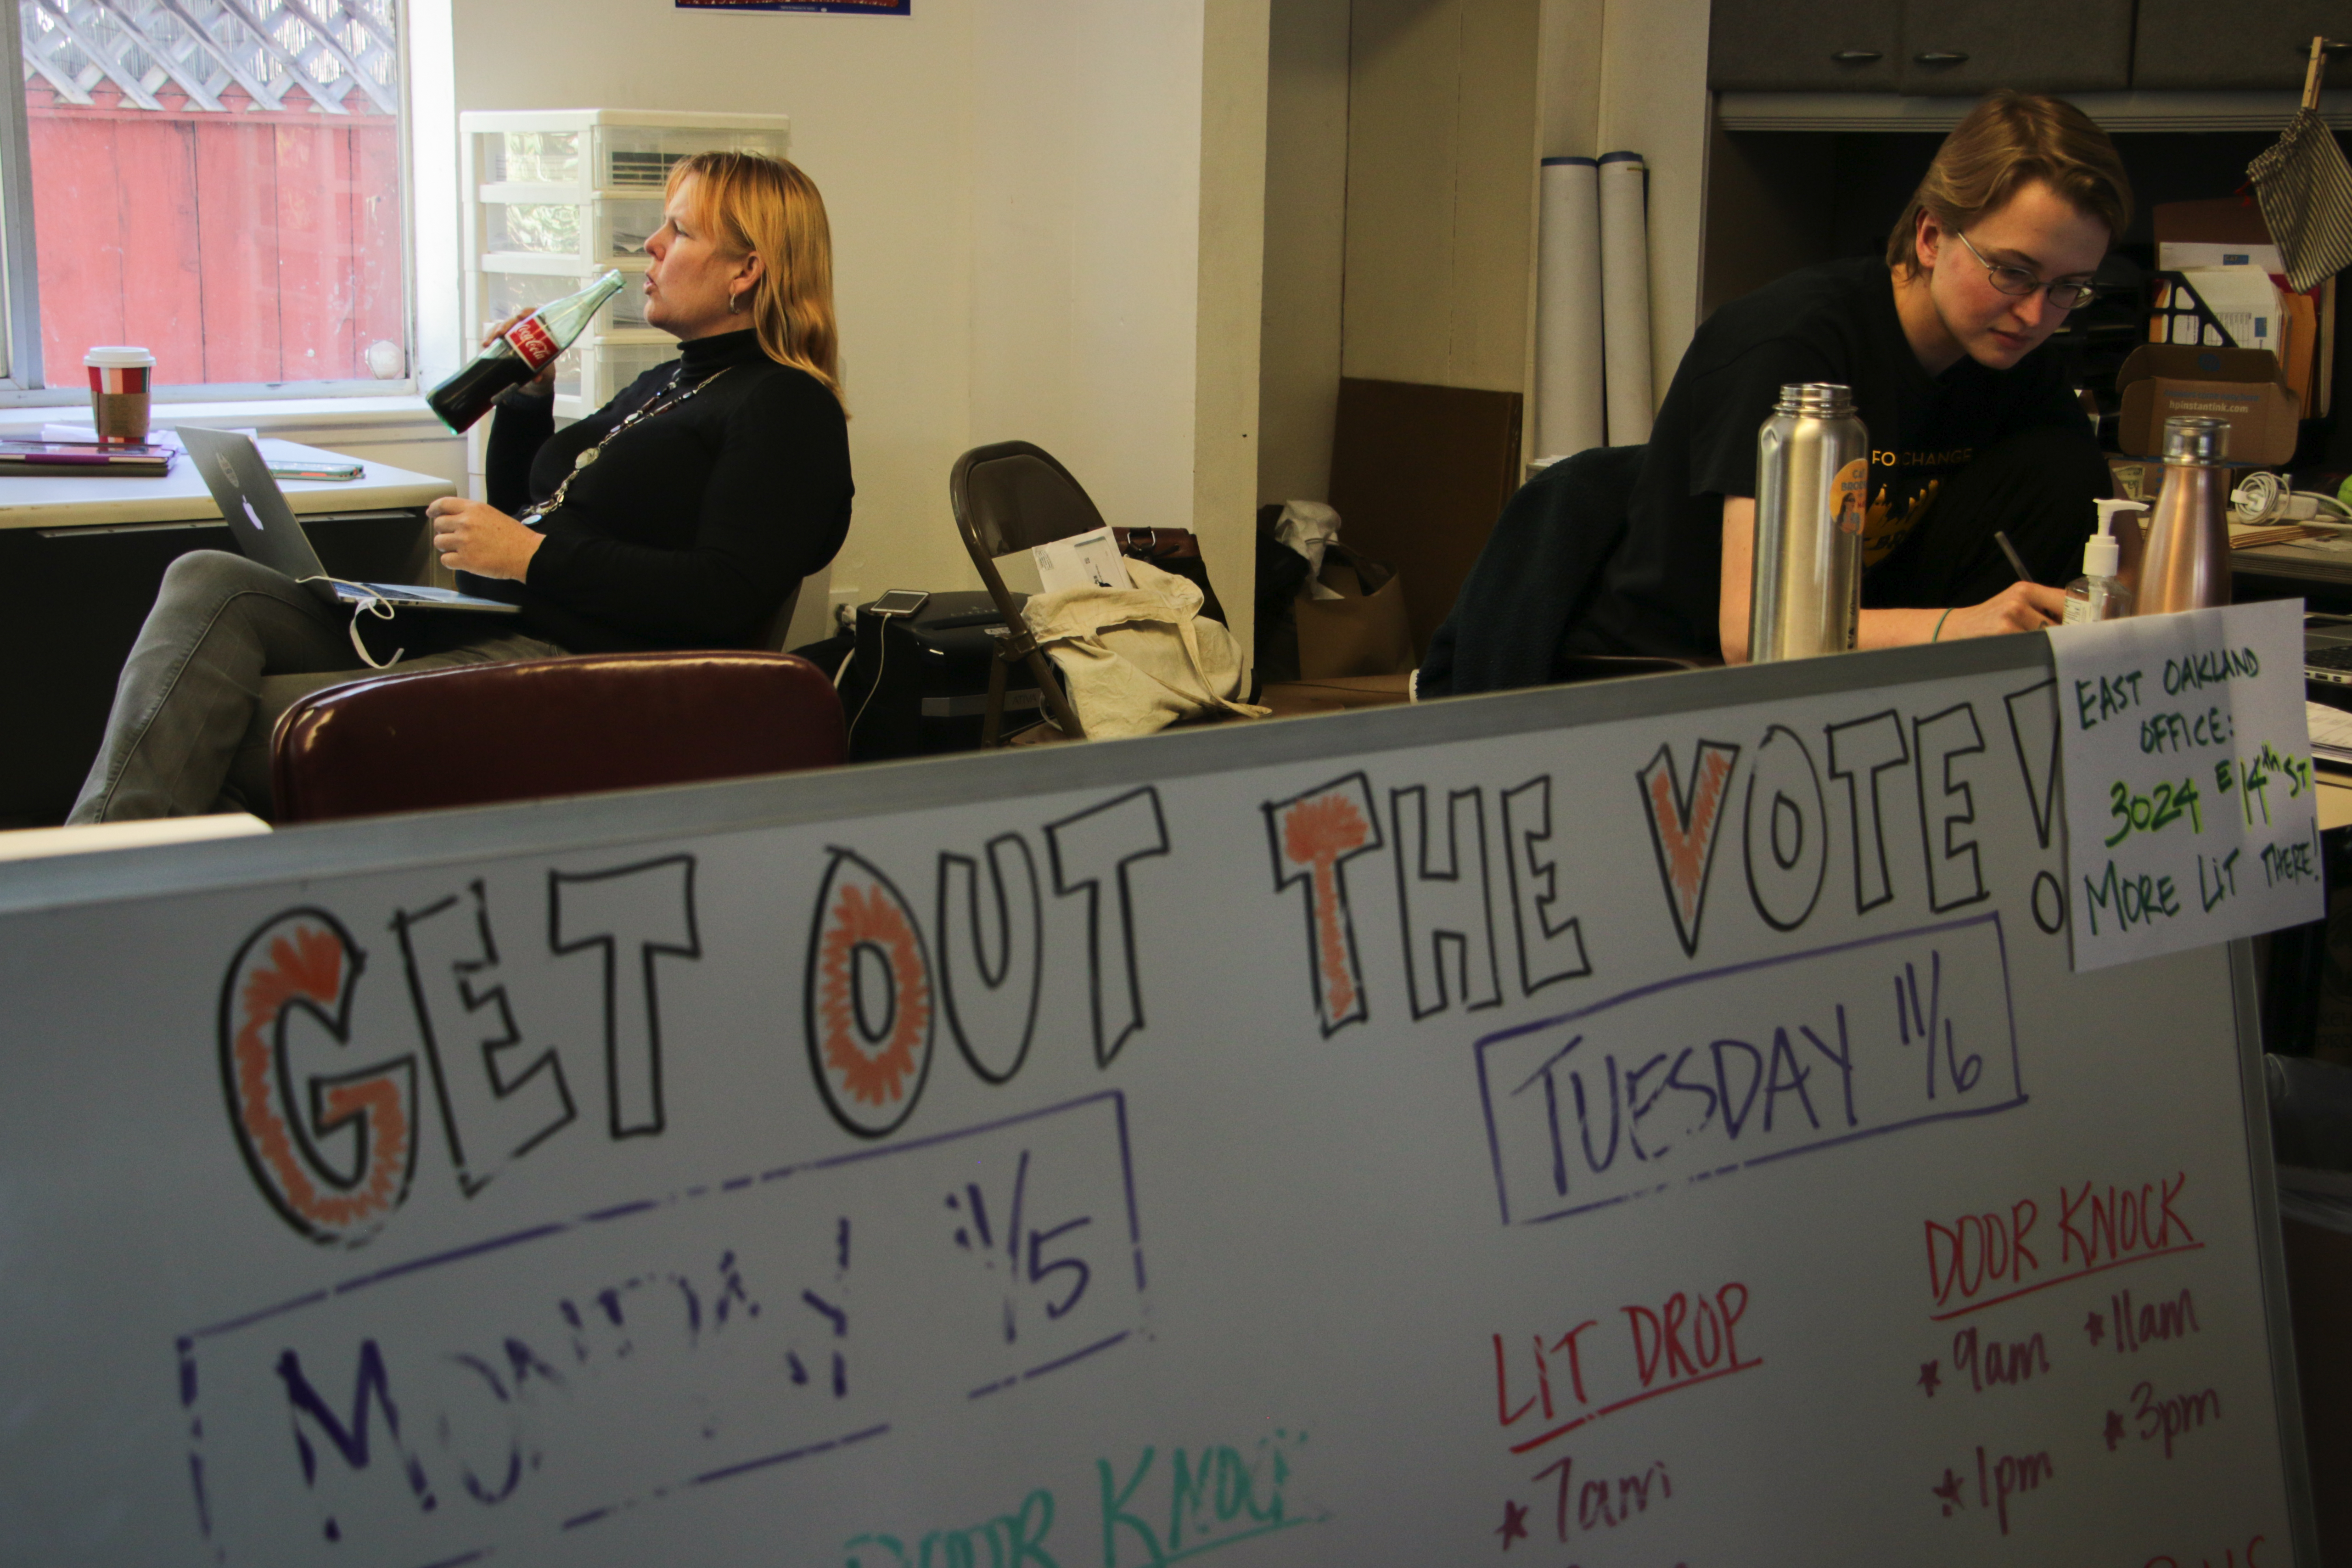 Coca-Cola
FOR CHANGE
hpinstantink.com
GET OUT THE VOTE!
EAST OAKLAND
OFFICE:
3024 E 14th ST
MORE LIT THERE!
MONDAY 11/5
TUESDAY 11/6
DOOR KNOCK
LIT DROP
DOOR KNOCK
* 7am
* 9am * 11am
* 1pm * 3pm